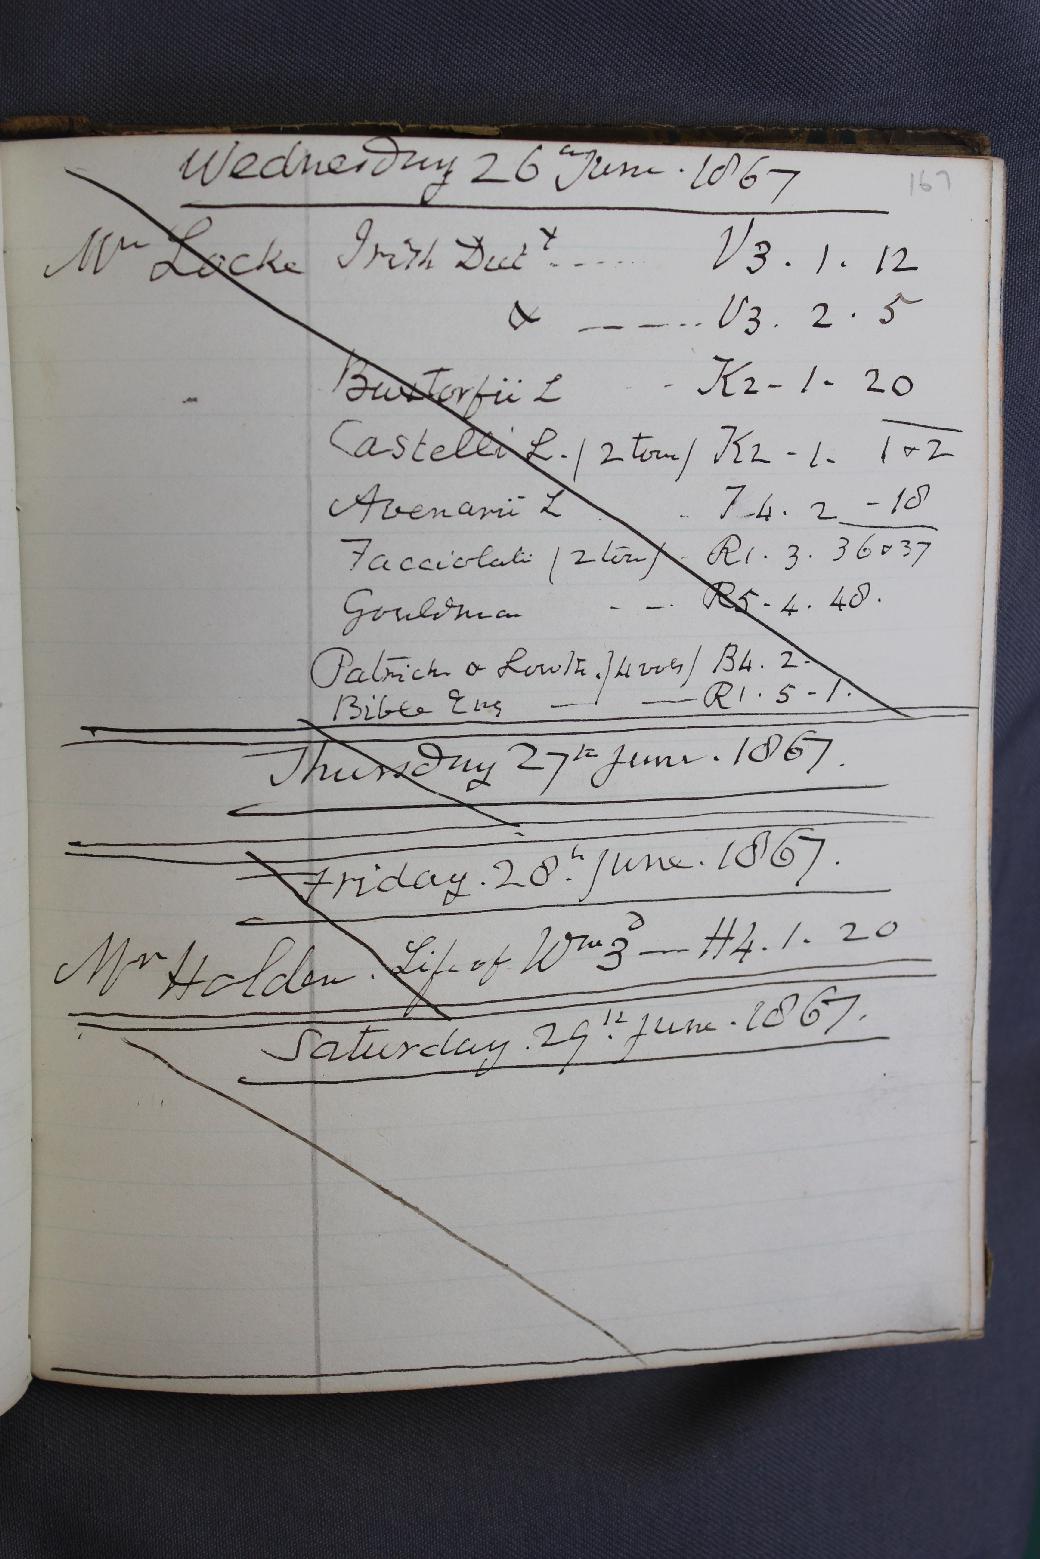 167
Wednesday 26th June . 1867
Mr Locke Irish Dict y ----- V3 . 1 . 12
& ----- V3 . 2 . 5
Buxtorfii L - - K2 - 1 - 20
Castelli L. / 2 tom / K2 - 1 - 1 & 2
Avenarii L - 4 . 2 - 18
Facciolati / 2 tom / - R1 . 3 . 36 & 37
Gouldman - - - R5 - 4 . 48 .
Patrick & Lowth . / 4 vols / B4 . 2 -
Bible Eng — — R1 . 5 - 1 .
Thursday 27th June . 1867 .
Friday . 28th June . 1867 .
Mr Holden . Life of Wm 3d — H4 . 1 . 20
Saturday . 29th June . 1867 .